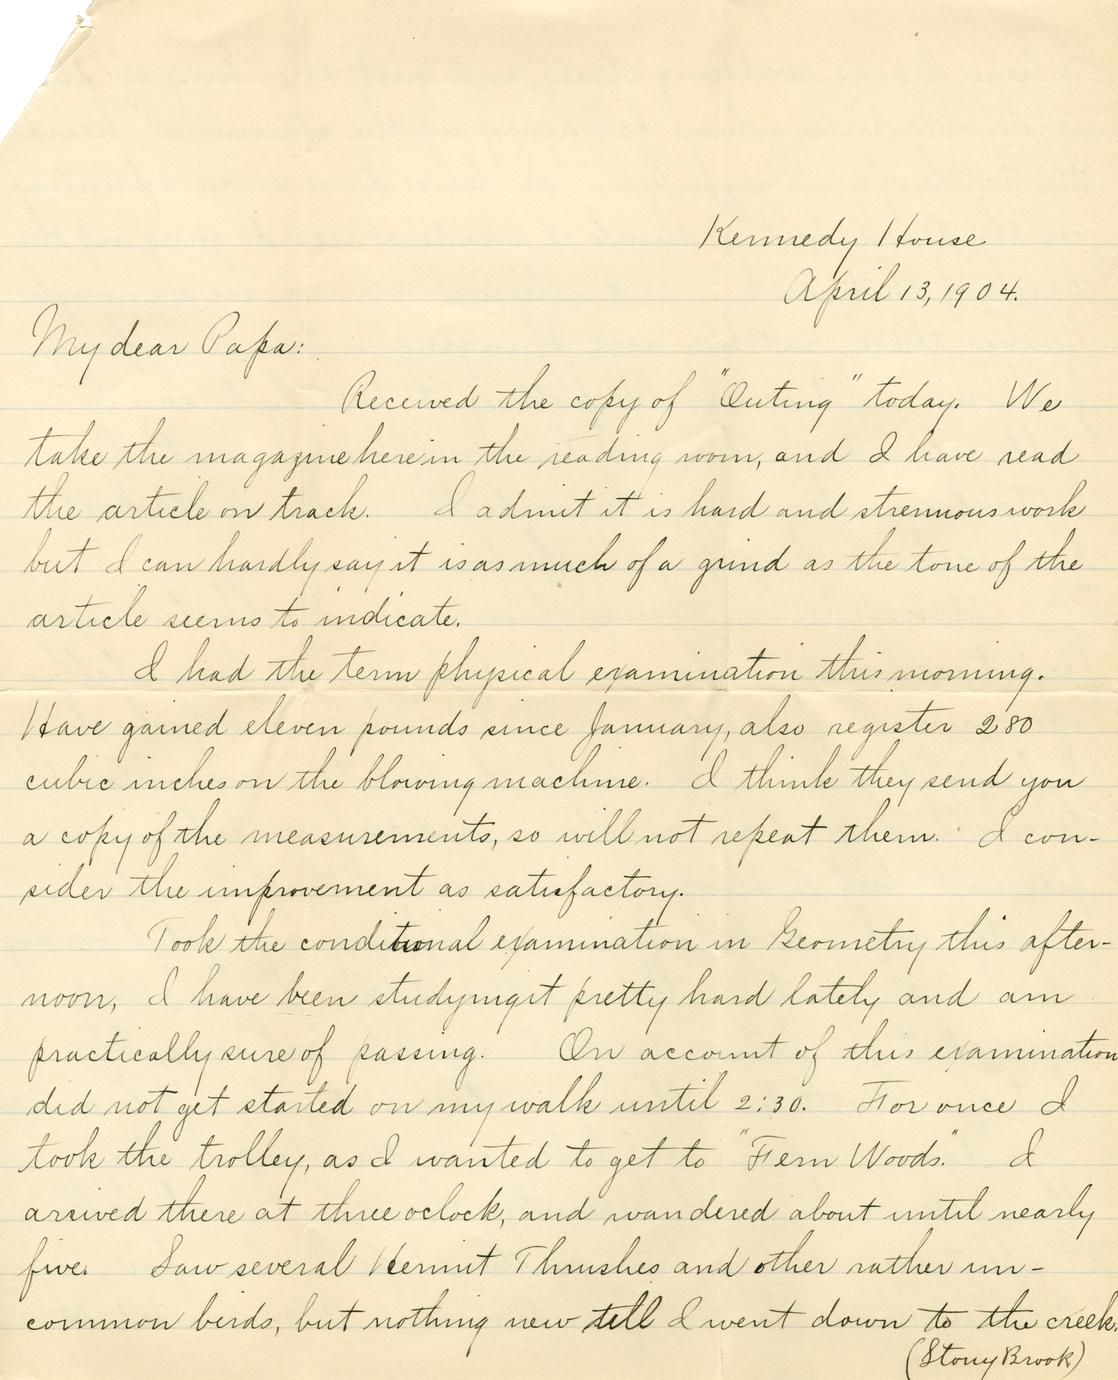 Kennedy House
April 13, 1904.
My dear Papa:
Received the copy of "Outing" today. We
take the magazine here in the reading room, and I have read
the article on track. I admit it is hard and strenuous work
but I can hardly say it is as much of a grind as the tone of the
article seems to indicate.
I had the term physical examination this morning.
Have gained eleven pounds since January, also register 280
cubic inches on the blowing machine. I think they send you
a copy of the measurements, so will not repeat them. I con-
sider the improvement as satisfactory.
Took the conditional examination in Geometry this after-
noon, I have been studying it pretty hard lately and am
practically sure of passing. On account of this examination
did not get started on my walk until 2:30. For once I
took the trolley, as I wanted to get to "Fern Woods." I
arrived there at three oclock, and wandered about until nearly
five. Saw several Hermit Thrushes and other rather un-
common birds, but nothing new till I went down to the creek.
(Stony Brook)